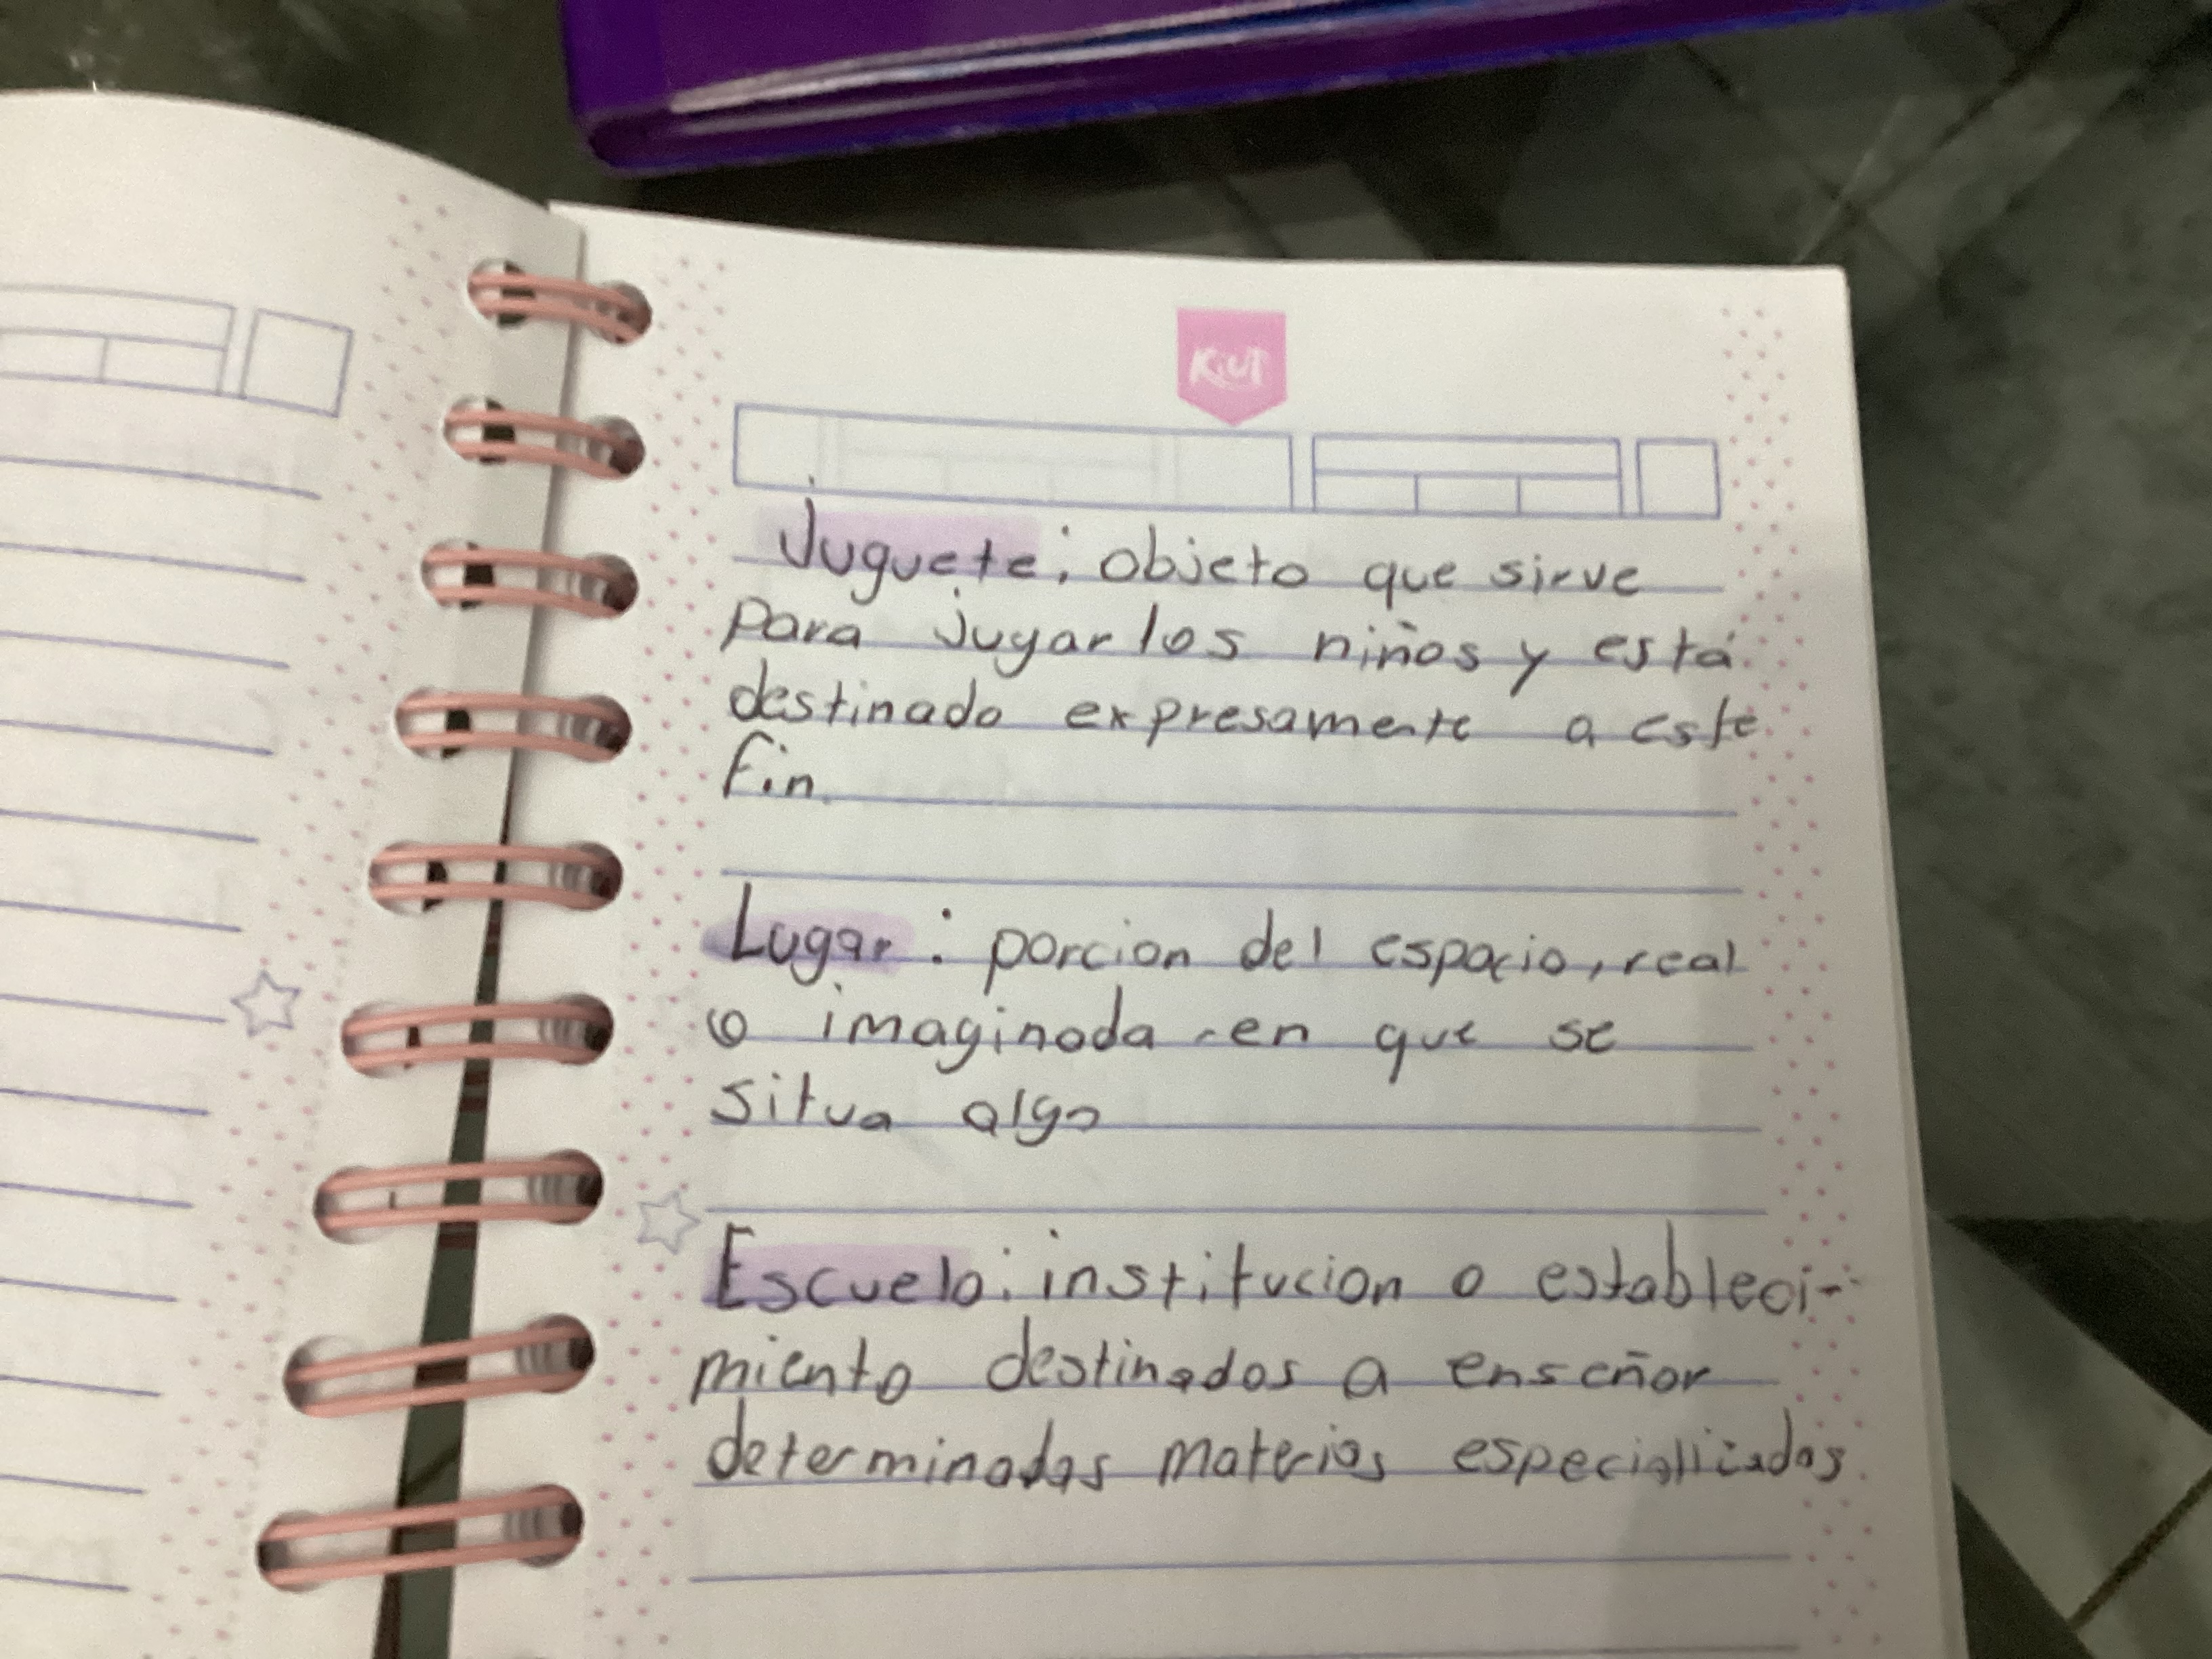 KIUT
Juguete: objeto que sirve
para jugar los niños y está
destinado expresamente a este
fin.
Lugar: porcion del espacio, real
o imaginada en que se
situa algo
Escuela: institucion o estableci-
miento destinados a enseñar
determinadas materias especializadas.